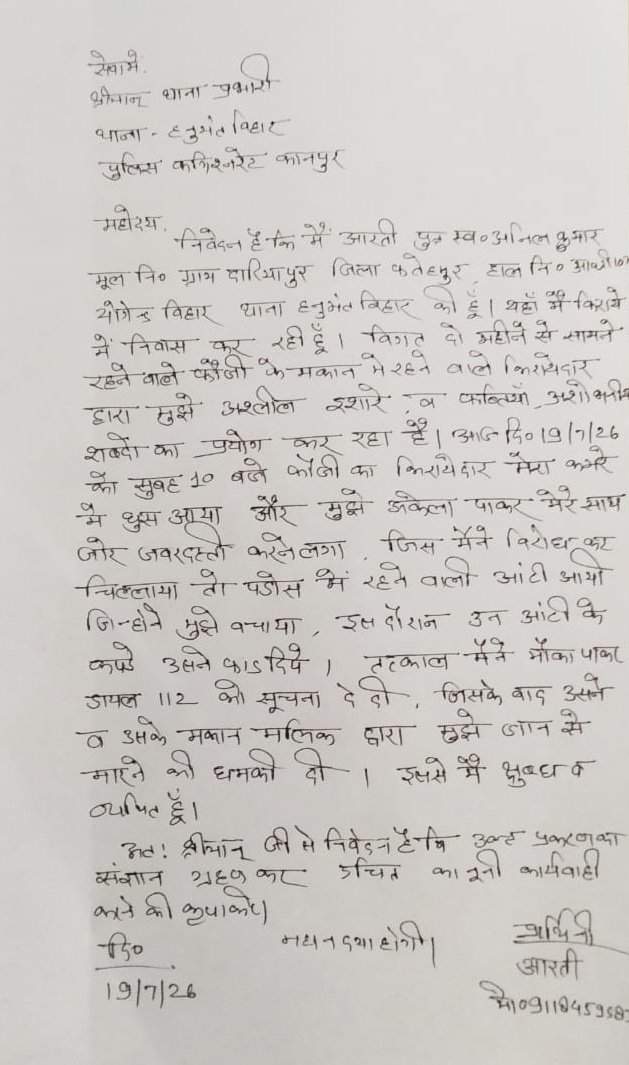 सेवामे,
श्रीमान् थाना प्रभारी
थाना - हनुमंत विहार
पुलिस कमिश्नरेट कानपुर
महोदय,
निवेदन है कि मैं आरती पुत्र स्व० अनिल कुमार
मूल नि० ग्राम दारियापुर जिला फतेहपुर, हाल नि०
योगेन्द्र विहार थाना हनुमंत विहार की हूँ। यहाँ मैं किराये
में निवास कर रही हूँ। विगत दो महीने से सामने
रहने वाले फौजी के मकान मे रहने वाले किरायेदार
द्वारा मुझे अश्लील इशारे, व फब्तियाँ, अशोभनीय
शब्दो का प्रयोग कर रहा है। आज दि० 19/7/26
को सुबह 10 बजे फौजी का किरायेदार मेरा कमरे
मे घुस आया और मुझे अकेला पाकर मेरे साथ
जोर जबरदस्ती करने लगा, जिस मैने विरोध कर
चिल्लाया तो पडोस में रहने वाली आंटी आयी
जिन्होने मुझे बचाया, इस दौरान उन आंटी के
कपडे उसने फाड दिये। तत्काल मैने मौका पाकर
डायल 112 को सूचना दे दी, जिसके बाद उसने
व उसके मकान मलिक द्वारा मुझे जान से
मारने की धमकी दी। इससे मैं क्षुब्ध व
व्यथित हूँ।
अतः श्रीमान् जी से निवेदन है कि उक्त प्रकरण का
संज्ञान ग्रहण कर उचित कानूनी कार्यवाही
करने की कृपा करें।
महान दया होगी।
दि०
19/7/26
प्रार्थिनी
आरती
मो० 911845958